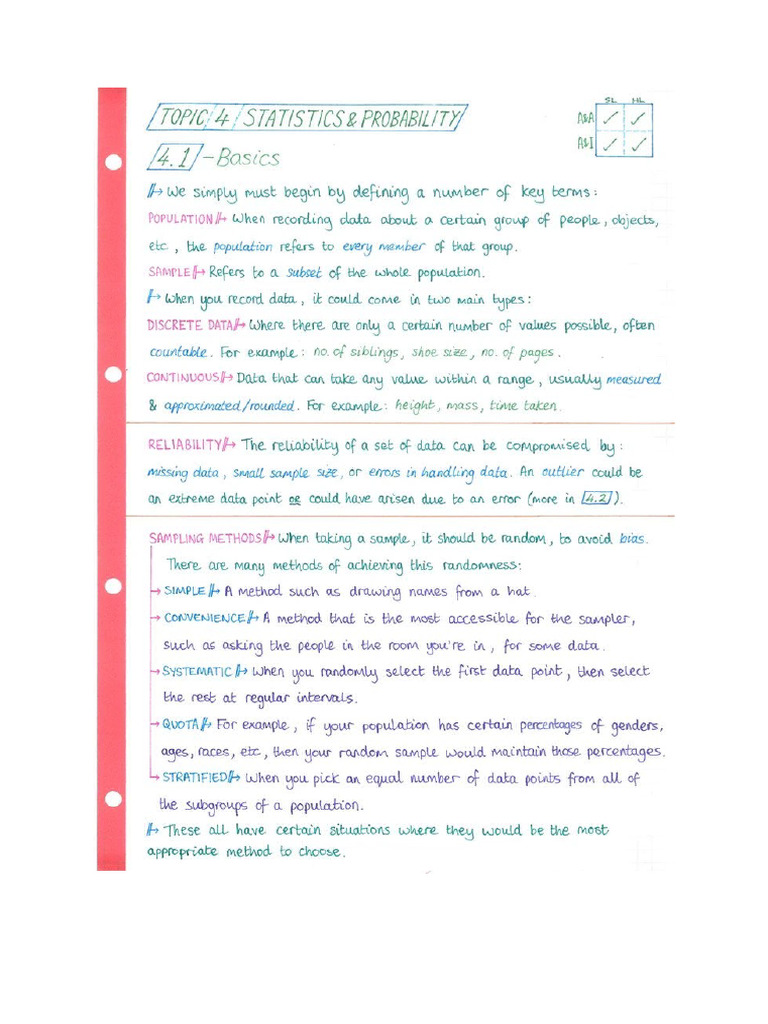 TOPIC 4 STATISTICS & PROBABILITY
SL HL
A&A ✓ ✓
A&I ✓ ✓
4.1 - Basics
We simply must begin by defining a number of key terms:
POPULATION When recording data about a certain group of people, objects,
etc, the population refers to every member of that group.
SAMPLE Refers to a subset of the whole population.
When you record data, it could come in two main types:
DISCRETE DATA Where there are only a certain number of values possible, often
countable. For example: no. of siblings, shoe size, no. of pages.
CONTINUOUS Data that can take any value within a range, usually measured
& approximated/rounded. For example: height, mass, time taken.
RELIABILITY The reliability of a set of data can be compromised by:
missing data, small sample size, or errors in handling data. An outlier could be
an extreme data point or could have arisen due to an error (more in 4.2).
SAMPLING METHODS When taking a sample, it should be random, to avoid bias.
There are many methods of achieving this randomness:
SIMPLE A method such as drawing names from a hat.
CONVENIENCE A method that is the most accessible for the sampler,
such as asking the people in the room you're in, for some data.
SYSTEMATIC When you randomly select the first data point, then select
the rest at regular intervals.
QUOTA For example, if your population has certain percentages of genders,
ages, races, etc, then your random sample would maintain those percentages.
STRATIFIED When you pick an equal number of data points from all of
the subgroups of a population.
These all have certain situations where they would be the most
appropriate method to choose.